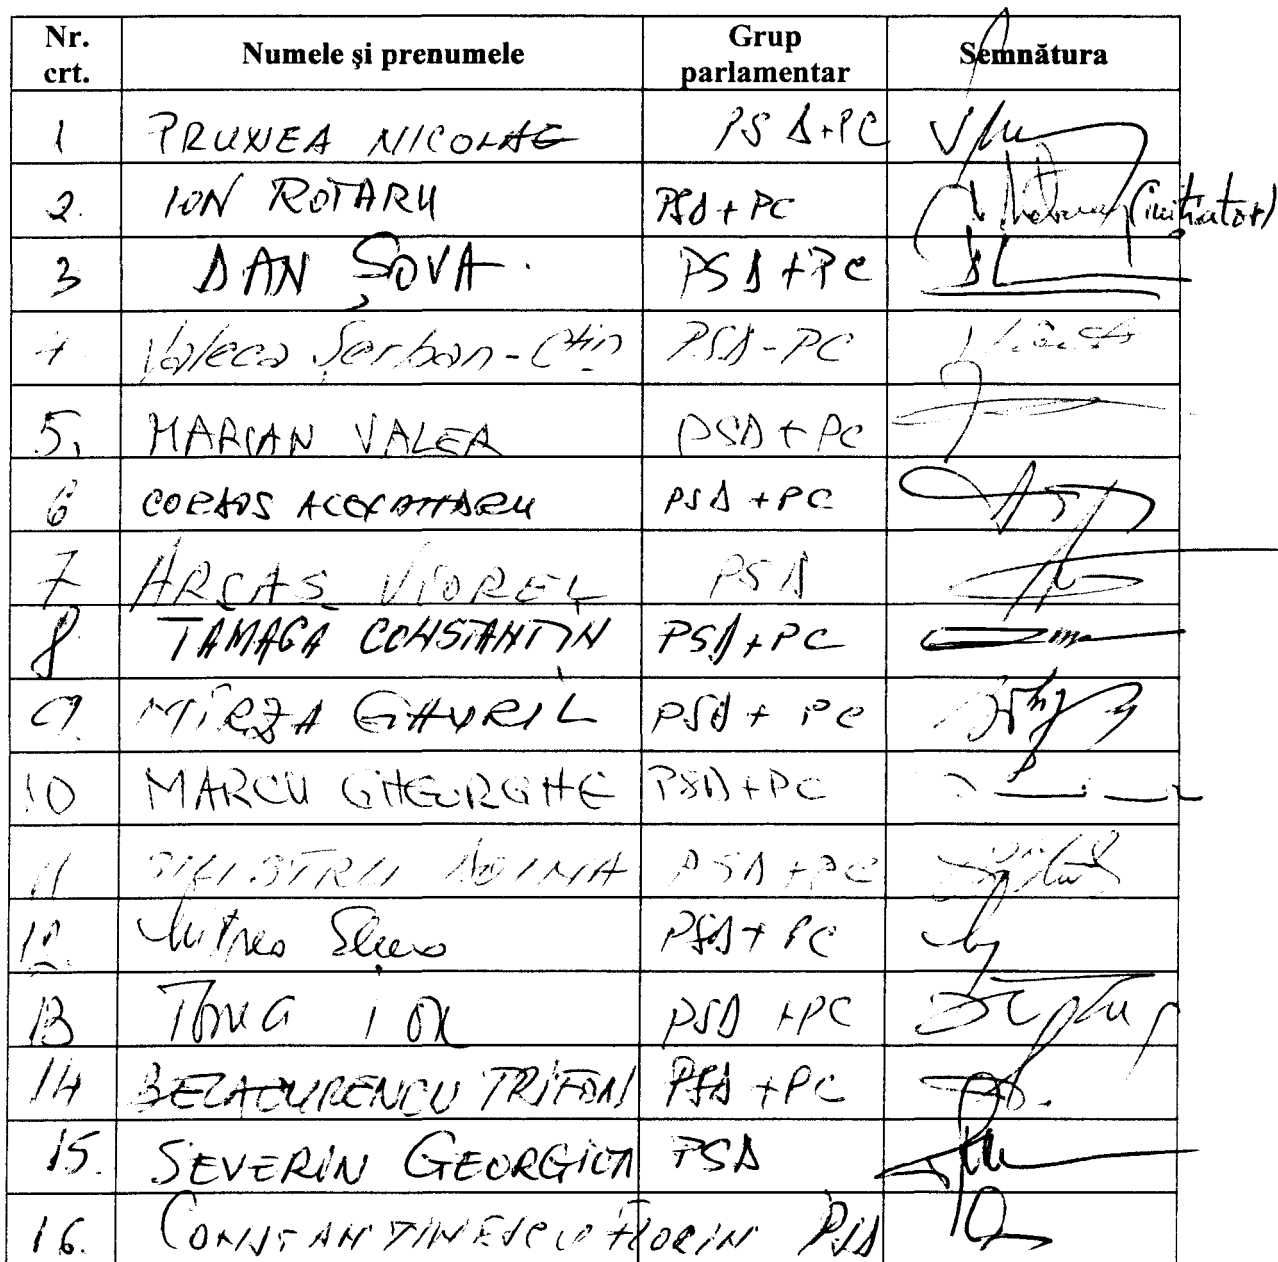 Nr. crt. Numele și prenumele Grup parlamentar Semnătura
1 PRUNEA NICOLAE PSD+PC
2. ION ROTARU PSD+PC (inițiator)
3 DAN ȘOVA. PSD+PC
4 Valeca Șerban-Ctin PSD-PC
5. MARIAN VALER PSD+PC
6 CORDOS ALEXANDRU PSD+PC
7 ARCAȘ VIOREL PSD
8 TĂMAGĂ CONSTANTIN PSD+PC
9. MÎRZA GAVRIL PSD+PC
10 MARCU GHEORGHE PSD+PC
11 DOINA PSD+PC
12. Mitrea Elena PSD+PC
13 TOMA ION PSD+PC
14 BELACURENCU TRIFON PSD+PC
15. SEVERIN GEORGICĂ PSD
16. CONSTANTINESCU FLORIN PSD